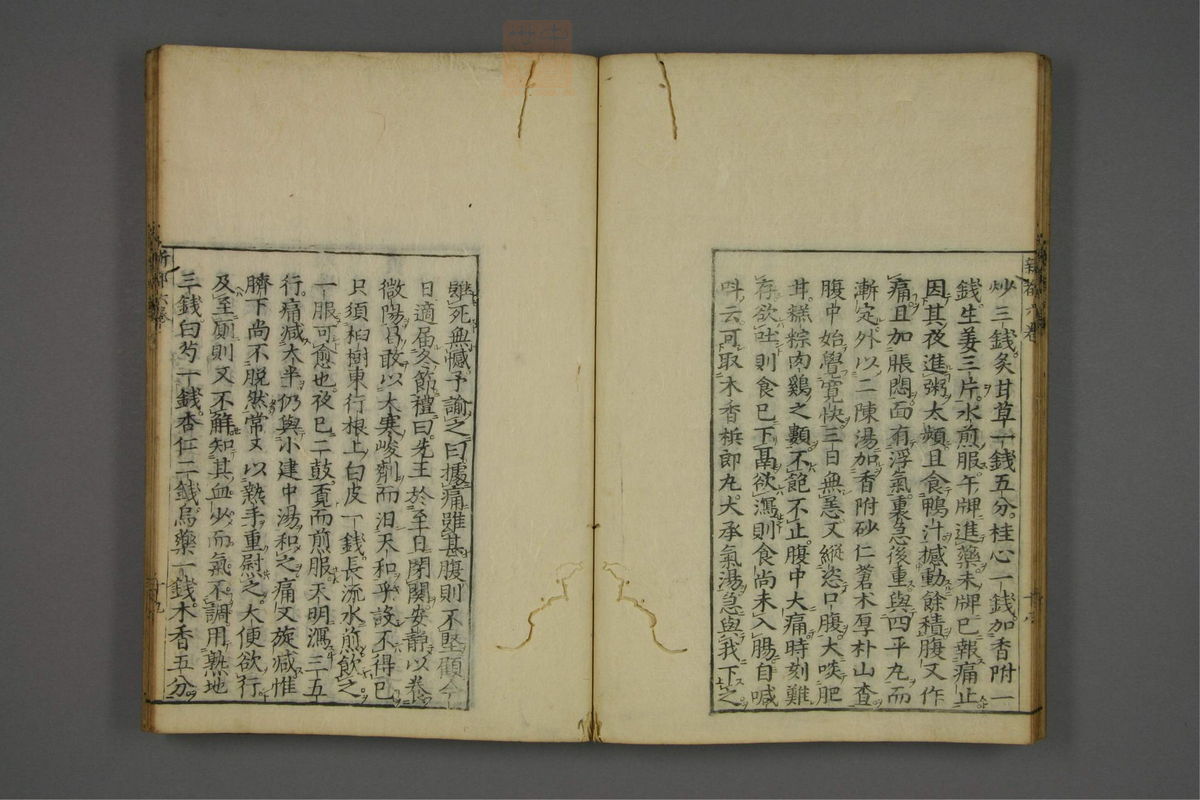 炒三錢炙甘草一錢五分桂心一錢加香附一
錢生姜三片水煎服午牌進藥未牌已報痛止
因其夜進粥太頻且食鴨汁撼動餘積腹又作
痛且加脹悶面有浮氣裏急後重與四平丸而
漸定外以二陳湯加香附砂仁蒼朮厚朴山查
腹中始覺寬快三日無恙又縱恣口腹大啖肥
甘糕粽肉鷄之類不飽不止腹中大痛時刻難
存欲吐則食已下鬲欲瀉則食尚未入腸自喊
呌云可取木香梹郎丸大承氣湯急與我下之
雖死無憾予諭之曰據痛雖甚腹則不堅顧今
日適届冬節禮曰先王於至日閉關安靜以養
微陽曷敢以大寒峻劑而汨天和乎設不得已
只須柏樹東行根上白皮一錢長流水煎飲之
一服可愈也夜已二鼓覔而煎服天明瀉三五
行痛減大半仍與小建中湯和之痛又旋減惟
臍下尚不脱然常又以熱手重慰之大便欲行
及至厠則又不解知其血少而氣不調用熟地
三錢白芍一錢杏仁二錢烏藥一錢木香五分